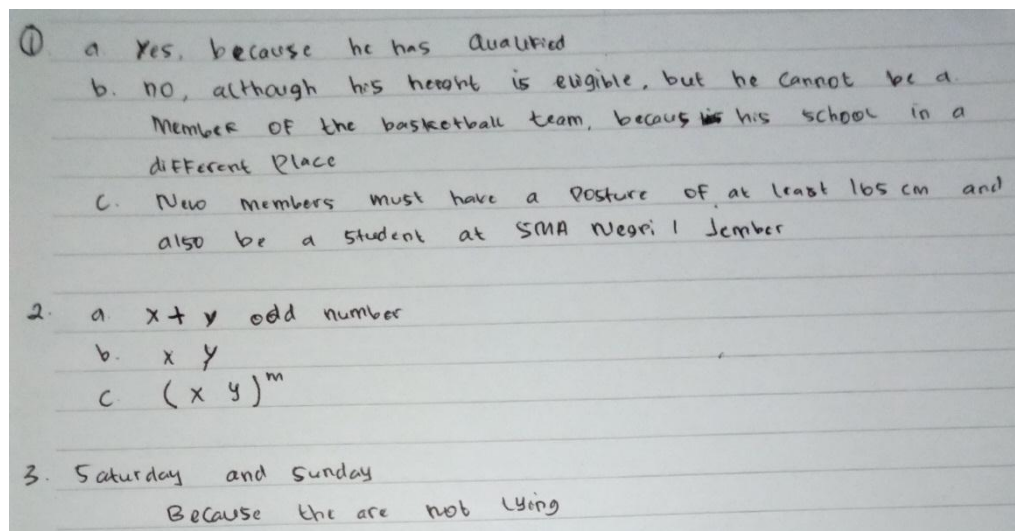 ① a Yes, because he has Qualified
b. no, although his height is eligible, but he cannot be a
Member OF the basketball team, becaus his school in a
different Place
C. New members must have a Posture of at least 165 cm and
also be a student at SMA Negri 1 Jember
2. a. x + y odd number
b. x y
c (x y)^m
3. Saturday and Sunday
Because the are not Lying